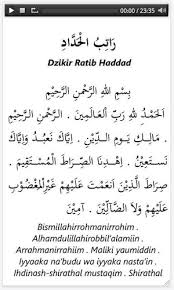 00:00 / 23:35
رَاتِبُ الْحَدَّادِ
Dzikir Ratib Haddad
بِسْمِ اللهِ الرَّحْمنِ الرَّحِيْمِ
اَلْحَمْدُ للهِ رَبِّ الْعَالَمِيْنَ . الرَّحْمنِ الرَّحِيْمِ
. مَالِكِ يَوْمِ الدِّيْنِ . إِيَّاكَ نَعْبُدُ وَإِيَّاكَ
نَسْتَعِيْنُ . اِهْدِنَا الصِّرَاطَ الْمُسْتَقِيْمَ .
صِرَاطَ الَّذِيْنَ اَنْعَمْتَ عَلَيْهِمْ غَيْرِ الْمَغْضُوْبِ
عَلَيْهِمْ وَلاَ الضَّآلِّيْنَ . آمِيْنَ
Bismillahirrohmanirrohim .
Alhamdulillahirobbil'alamiin .
Arrahmanirrahiim . Maliki yaumiddin .
Iyyaaka na'budu wa iyyaka nasta'in .
Ihdinash-shirathal mustaqim . Shirathal